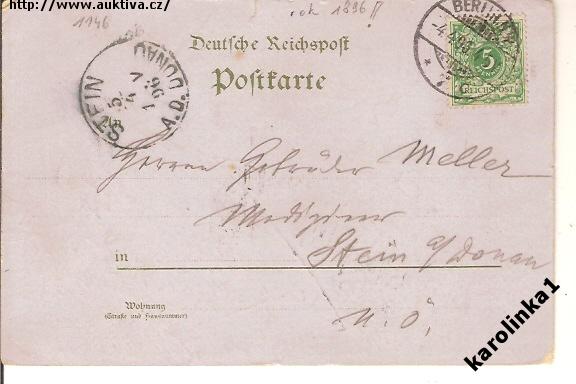 http://www.auktiva.cz/
1146
rok 1896
Deutsche Reichspost
Postkarte
BERLIN
5
REICHSPOST
STEIN A.D. DONAU
An
Herren Gebrüder Meller
Stein a/Donau
in
N. Ö.
Wohnung
(Straße und Hausnummer)
karolinka1